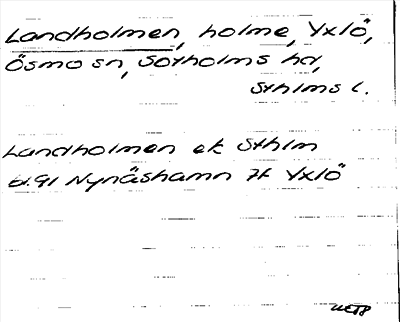 Landholmen, holme, Yxlö,
Ösmo sn, Sotholms hd,
Sthlms l.
Landholmen ek Sthlm
bl.91 Nynäshamn 7f Yxlö